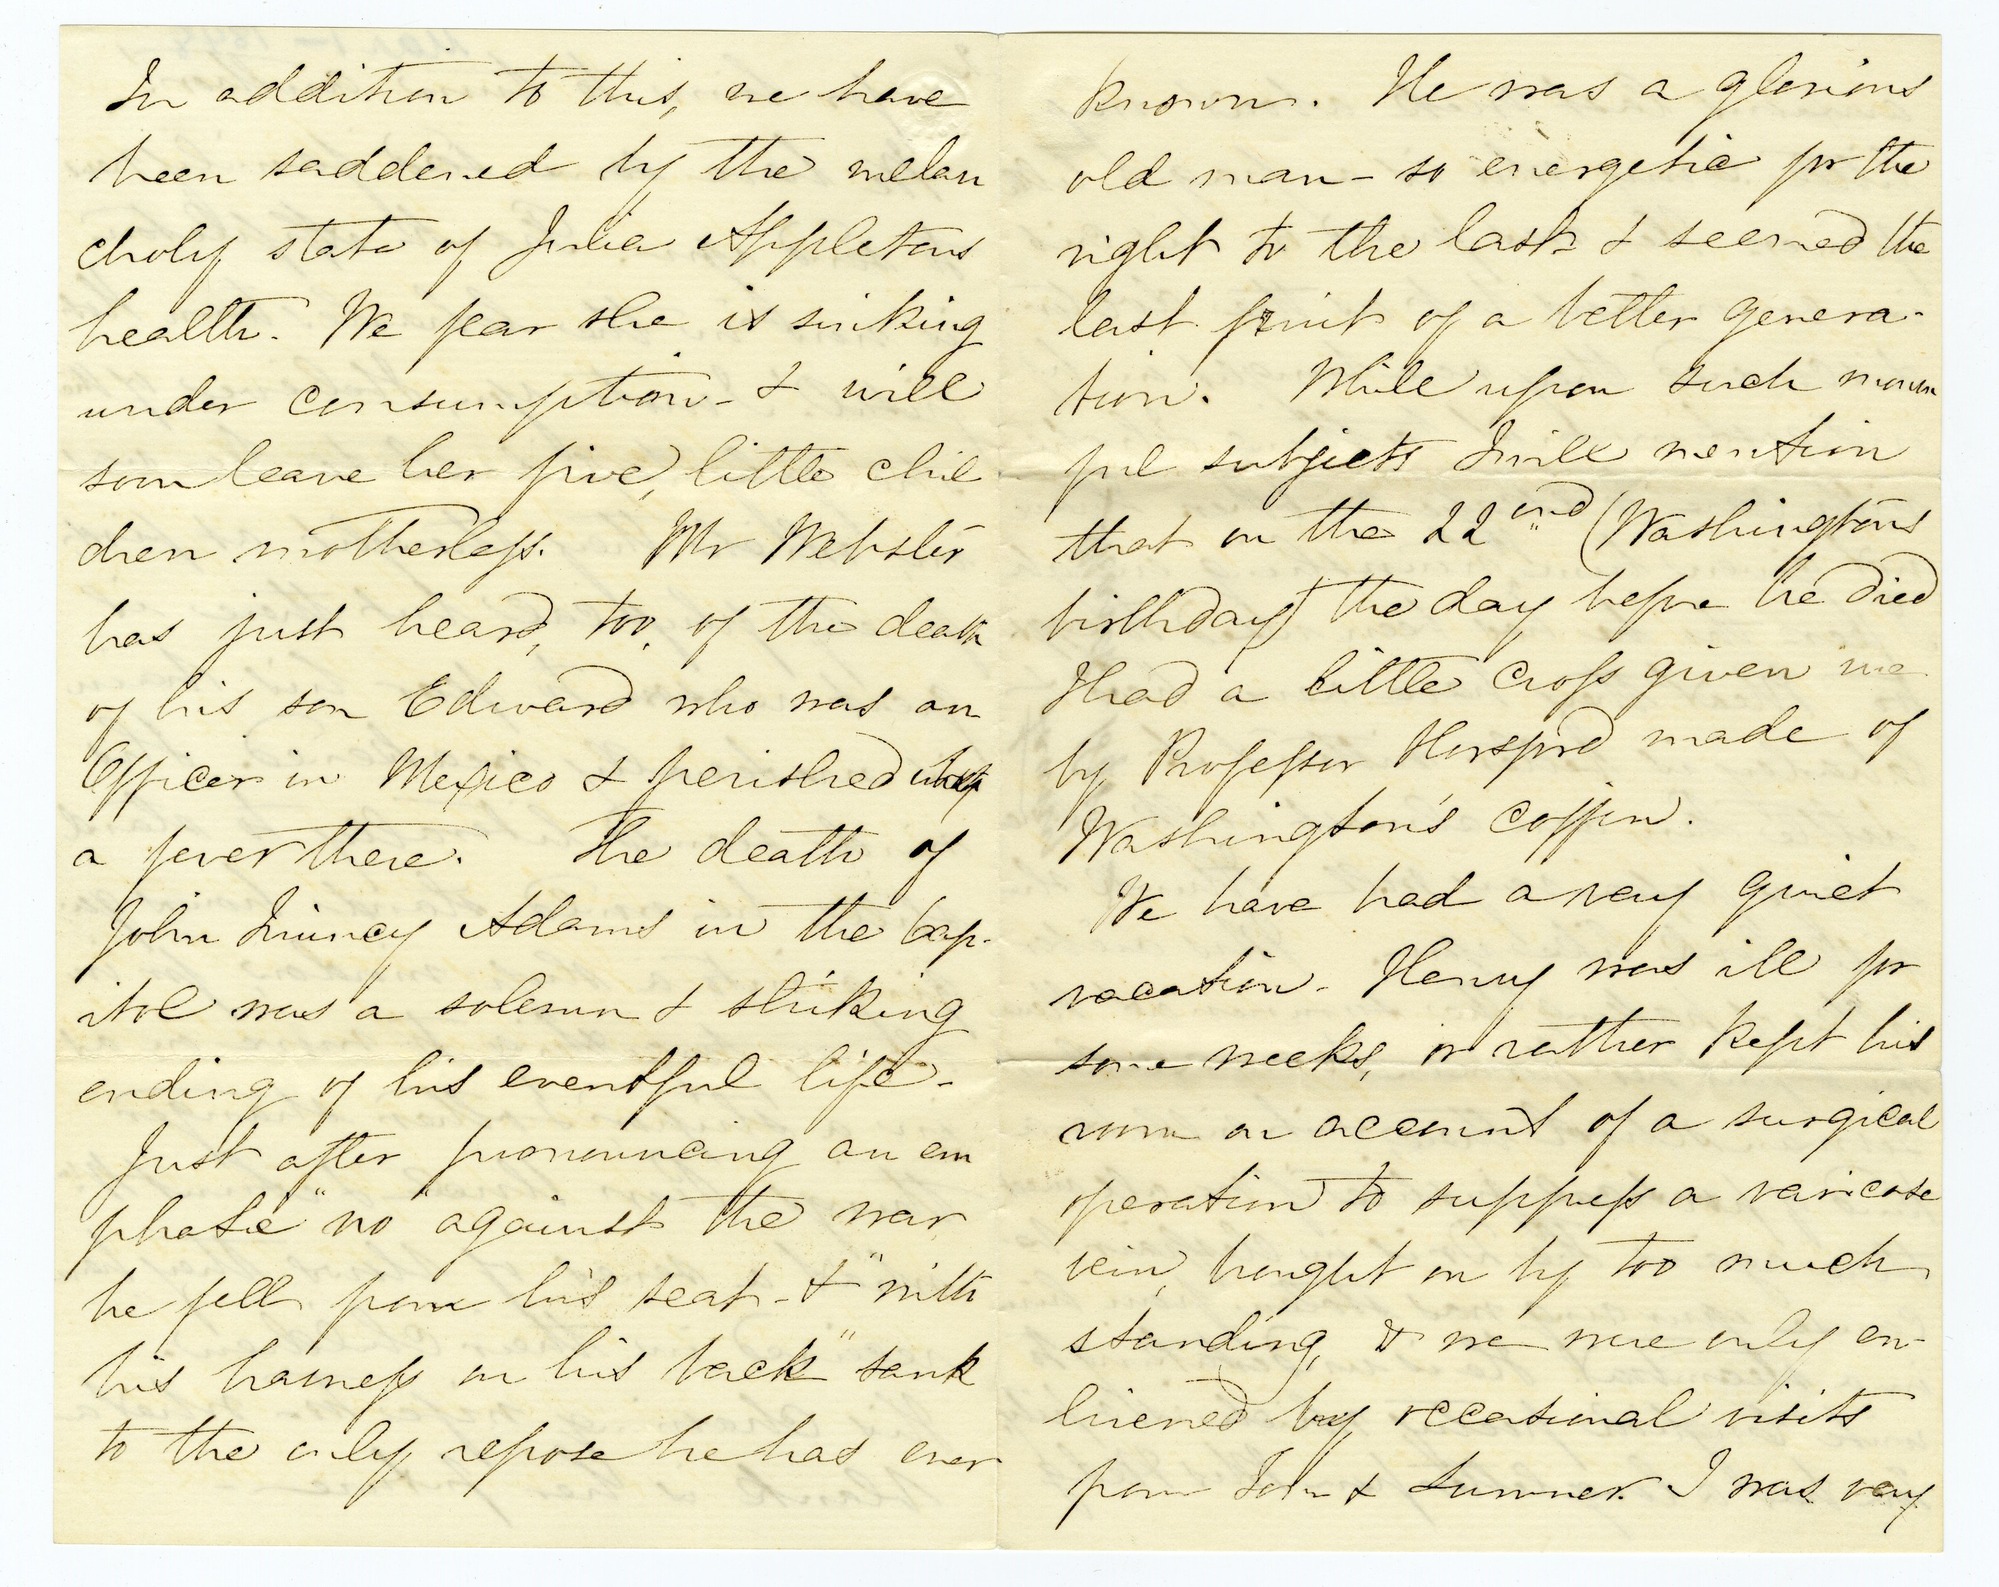 In addition to this, we have
been saddened by the melan
choly state of Julia Appletons
health. We fear she is sinking
under consumption - & will
soon leave her five, little chil
dren motherless. Mr Webster
has just heard, too, of the death
of his son Edward who was an
Officer in Mexico & perished
a fever there. The death of
John Quincy Adams in the Cap-
itol was a solemn & striking
ending of his eventful life -
Just after pronouncing an em
phatic "no" against the war
he fell from his seat - & "with
his harness on his back" sank
to the only repose he has ever
known. He was a glorious
old man - so energetic for the
right to the last & seemed the
last fruit of a better genera-
tion. While upon such mourn
ful subjects I will mention
that on the 22nd (Washington's
birthday) the day before he died
I had a little cross given me
by Professor Horsford made of
Washington's coffin.
We have had a very quiet
vacation - Henry was ill for
some weeks, or rather kept his
room on account of a surgical
operation to suppress a varicose
vein, brought on by too much
standing, & we were only en-
livened by occasional visits
from John & Sumner. I was very